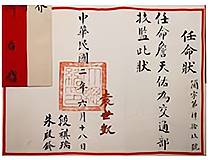 任命狀
任命詹天佑為交通部
技監此狀
袁世凱
中華民國二年六月十八日
段祺瑞
朱啟鈐